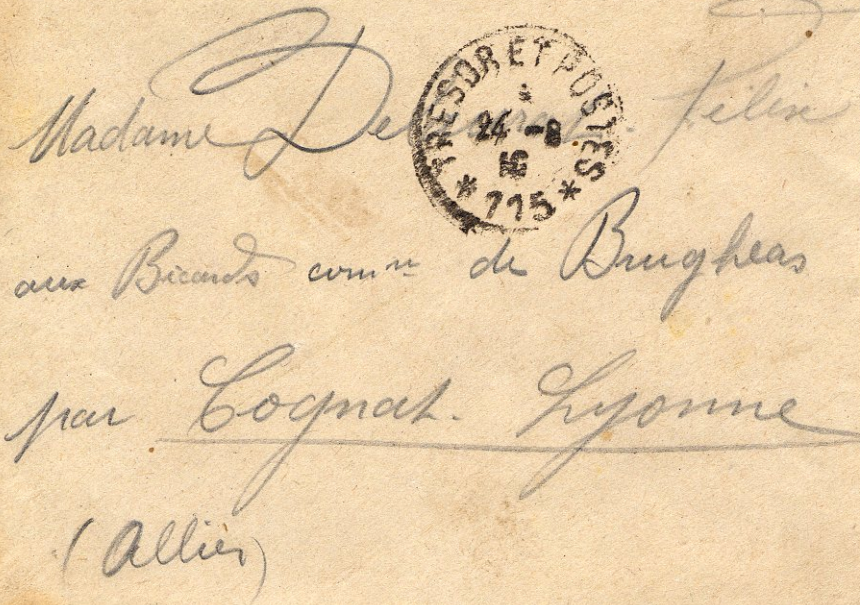 Madame Félix
TRESOR ET POSTES
24 -8
16
*715*
aux Bicards comne de Brugheas
par Cognat. Lyonne
(Allier)